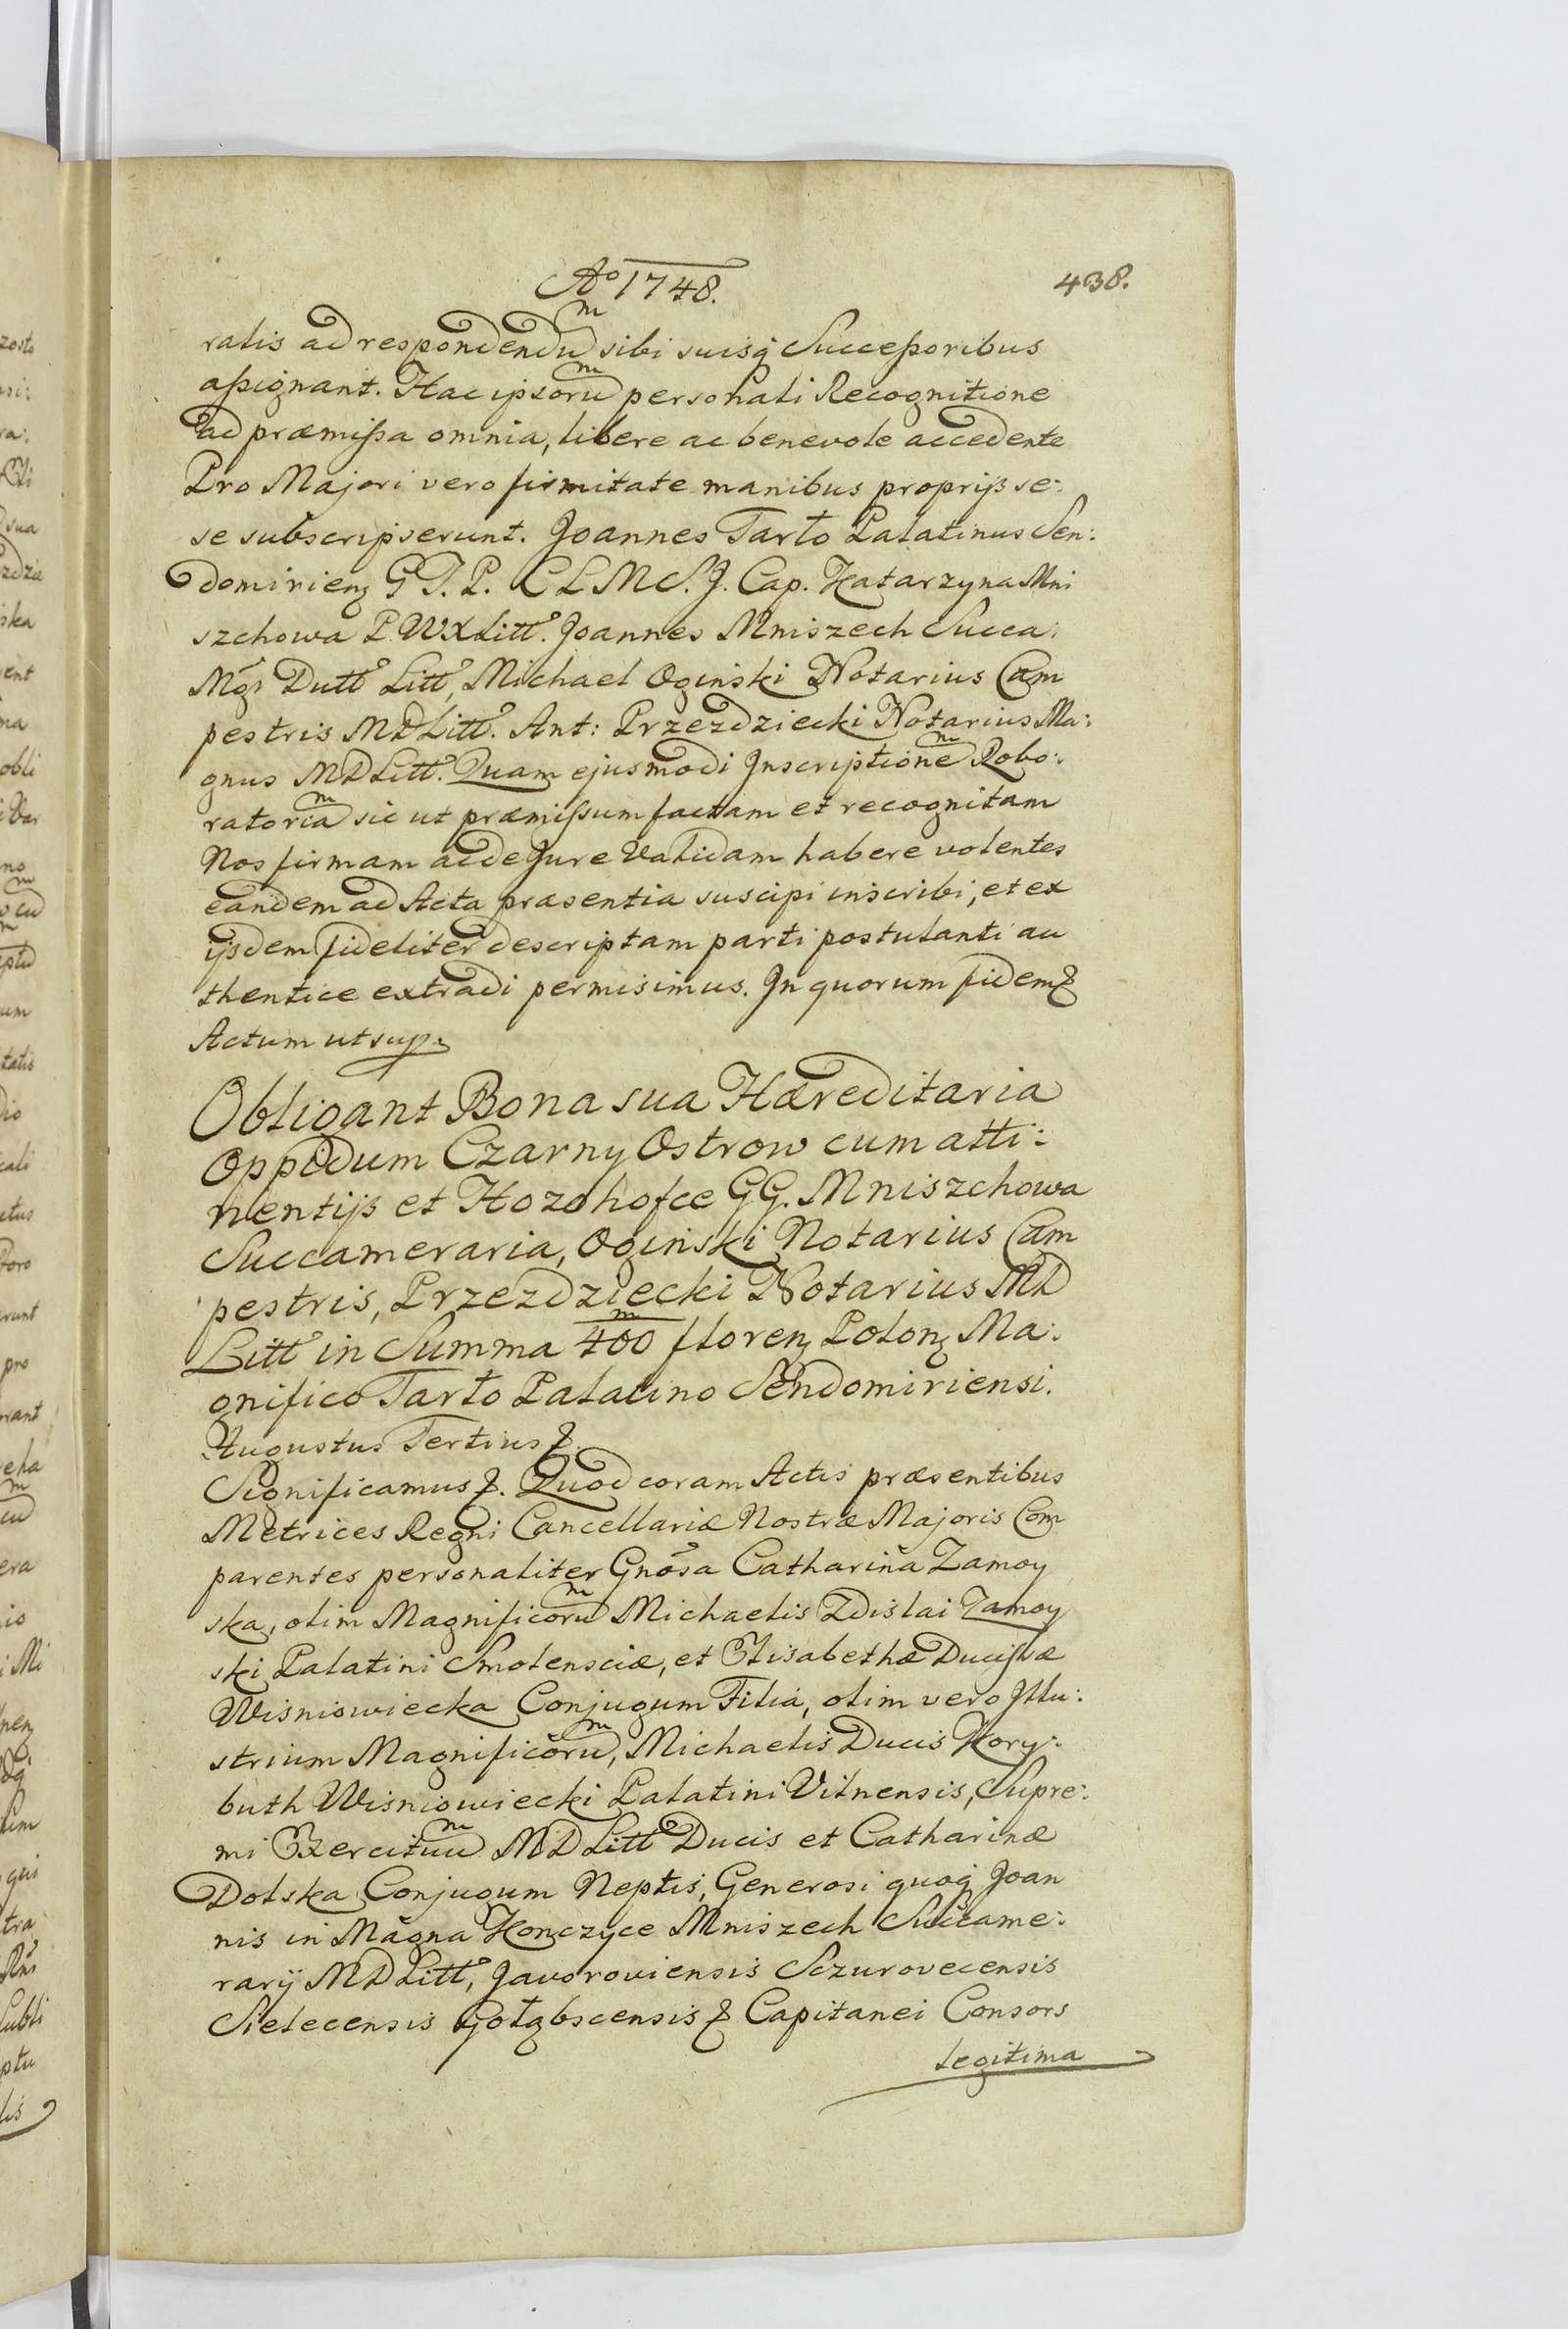 Aº 1748.
438.
ralis ad respondendũ sibi suisq̃ Successoribus
assignant. Hac ipsorũ personali Recognitione
ad præmissa omnia, libere ac benevole accedente
Pro Majori vero firmitate manibus proprijs se:
se subscripserunt. Joannes Tarło Palatinus Sen:
domirienz G T. P. C L M C. J. Cap. Katarzyna Mni
szchowa P. W X Litt. Joannes Mniszech Succa:
Mgs Dutt Litt, Michael Oginski Notarius Cam
pestris MD Litt. Ant: Przezdziecki Notarius Ma:
gnus MD Litt. Quam ejusmodi Inscriptionẽ Robo:
ratoriã sic ut præmissum factam et recognitam
Nos firmam ac de Jure Validam habere volentes
eandem ad Acta præsentia suscipi inscribi, et ex
ijsdem fideliter descriptam parti postulanti au
thentice extradi permisimus. In quorum fidem &
Actum ut sup.
Obligant Bona sua Hæreditaria
Oppidum Czarny Ostrow cum atti:
nentijs et Hozohofce GG. Mniszchowa
Succameraria, Oginski Notarius Cam
pestris, Przezdziecki Notarius MD
Litt in Summa 400 m florenz Polonz Ma:
gnifico Tarło Palatino Sendomiriensi.
Augustus Tertius &.
Significamus &. Quod coram Actis præsentibus
Metrices Regni Cancellariæ Nostræ Majoris Com
parentes personaliter Gnosa Catharina Zamoy
ska, olim Magnificorũ Michaelis Zdislai Zamoy
ski Palatini Smolensciæ, et Elisabethæ Ducissæ
Wisniowiecka Conjugum Filia, olim vero Illu:
strium Magnificorũ, Michaelis Ducis Kory:
buth Wisniowiecki Palatini Vilnensis, Supre:
mi Exercituũ MD Litt Ducis et Catharinæ
Dolska Conjugum Neptis, Generosi quoq̃ Joan
nis in Magna Konczyce Mniszech Succame:
rarij MD Litt, Javoroviensis Sczurovecensis
Sielecensis Gołąbscensis & Capitanei Consors
legitima